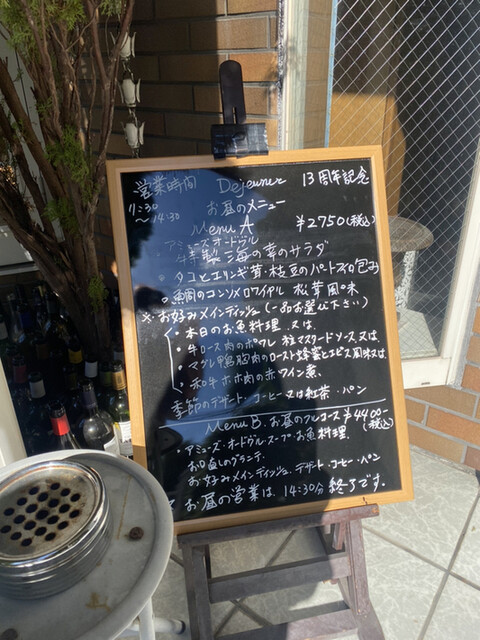 営業時間 Dejeuner 13周年記念
11:30
～14:30 お昼のメニュー
Menu A ¥2750(税込)
アミューズ・オードヴル
・特製海の幸のサラダ
・タコとエリンギ茸・枝豆のパートフィロ包み
○鯛のコンソメロワイヤル 松茸風味
※お好みメインディッシュ(一品お選び下さい)
・本日のお魚料理 又は
・牛ロース肉のポワレ 粒マスタードソース又は
・マグレ鴨胸肉のロースト蜂蜜とエピス風味又は
・赤牛ホホ肉の赤ワイン煮
季節のデザート・コーヒー又は紅茶・パン
Menu B. お昼のフルコース ¥4400-
(税込)
・アミューズ・オードヴル スープ・お魚料理.
お口直しのグラニテ.
お好みメインディッシュ. デザート・コーヒー・パン
お昼の営業は、14:30分 終了です.